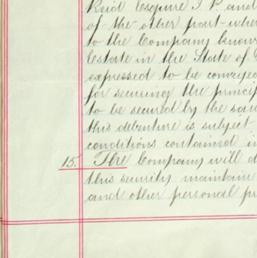 Reid Esquire J. P. and
of the other part where
to the Company know
Estate in the State of
expressed to be conveyed
for securing the princip
to be secured by the said
this debenture is subject
conditions contained in
15. The Company will d
this security maintain
and other personal pr